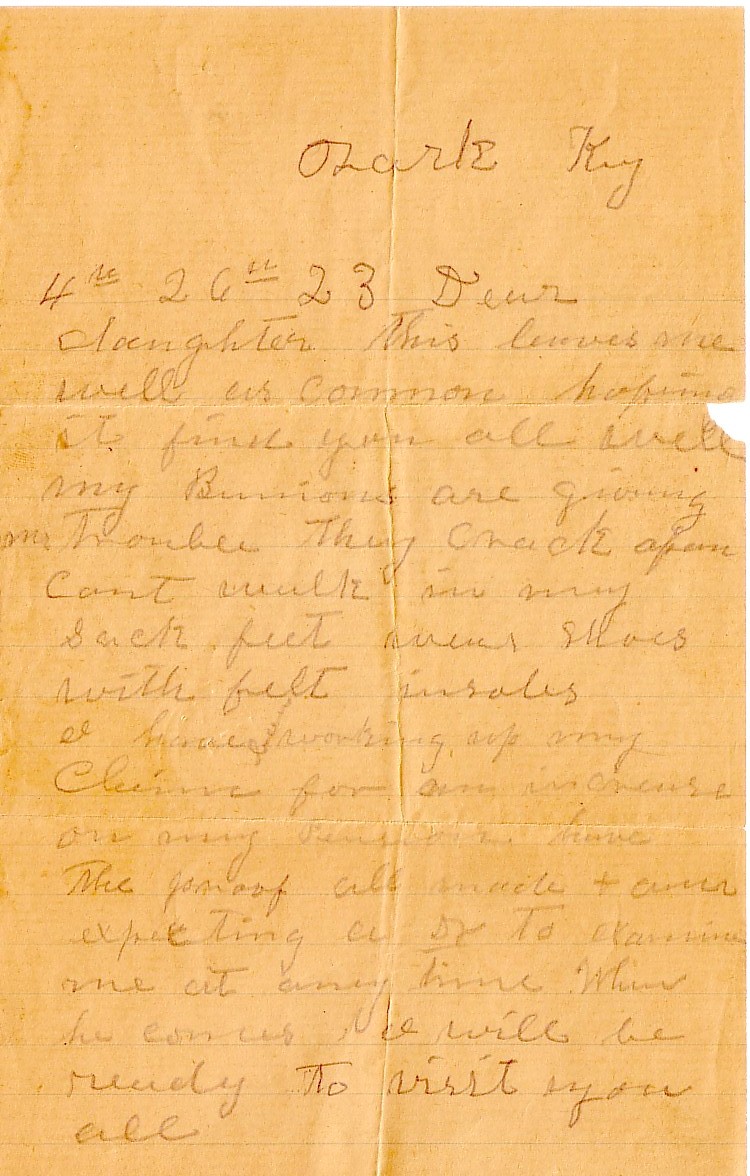 Ozark Ky
4th 26th 23 Dear
daughter this leaves me
well as common hoping
it find you all well
my Bunions are giving
me Troubee They Crack opan
Cant walk in my
Sack feet wear Shoes
with felt insoles
I have working up my
Claim for an increase
on my Pension. have
the proof all made + am
expecting a Dr to examine
me at any time When
he comes I will be
ready To visit you
all